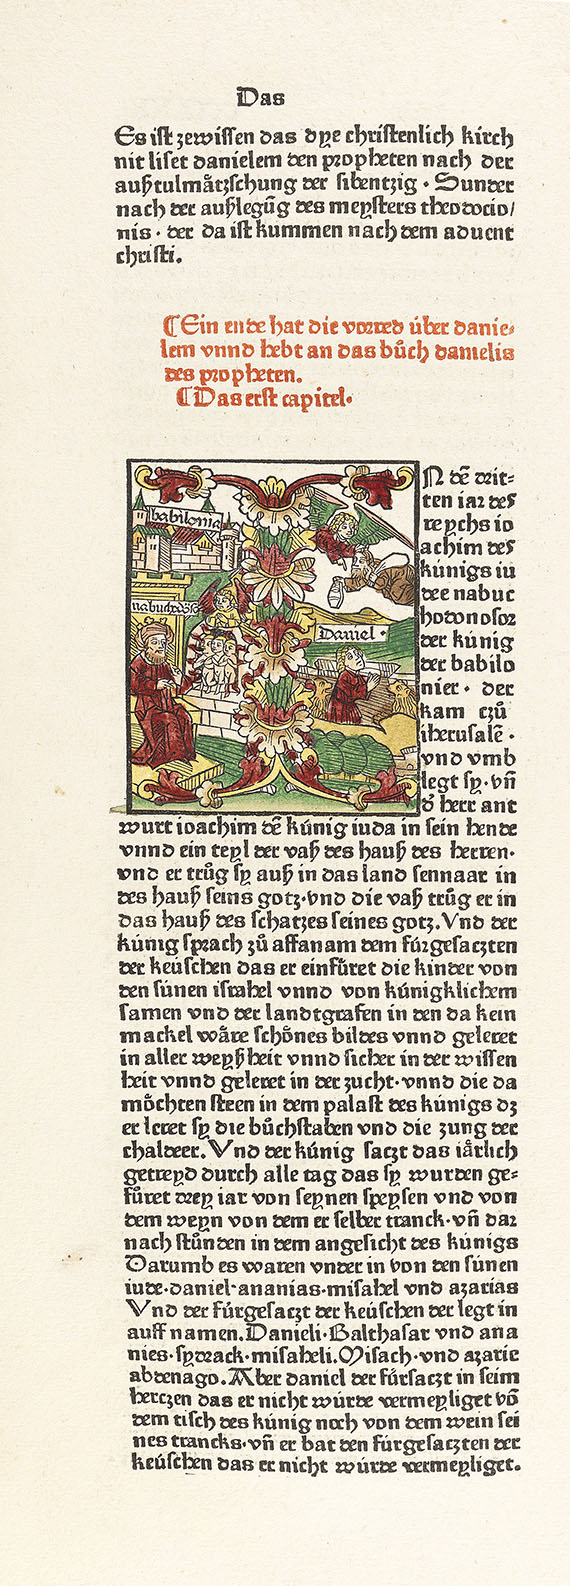 Das
Es ist zewissen das dye christenlich kirch
nit liset danielem den propheten nach der
außtulmåtzschung der sibentzig · Sunder
nach der außlegūg des meysters theodocio/
nis · der da ist kummen nach dem aduent
christi.
¶Ein ende hat die vorred über danie⸗
lem vnnd hebt an das bůch danielis
des propheten.
¶Das erst capitel·
babilonia
nabuchodōso
Daniel ·
IN dē drit⸗
ten iar des
reychs io
achim des
künigs iu
dee nabuc
hodonosor
der künig
der babilo
nier · der
kam czů
iherusalē ·
vnd vmb
legt sy · vn̄
d̕ herr ant
wurt ioachim dē künig iuda in sein hende
vnnd ein teyl der vaß des hauß des herren·
vnd er trůg sy auß in das land sennaar in
des hauß seins gotz·vnd die vaß trůg er in
das hauß des schatzes seines gotz. Vnd der
künig sprach zů assanam dem fürgesaczten
der keüschen das er einfüret die kinder von
den sünen israhel vnnd von künigklichem
samen vnd der landtgrafen in den da kein
mackel wåre schönes bildes vnnd geleret
in aller weyßheit vnnd sicher in der wissen
heit vnnd geleret in der zucht·vnnd die da
möchten steen in dem palast des künigs dz
er leret sy die bůchstaben vnd die zung der
chaldeer. Vnd der künig saczt das iårlich
getreyd durch alle tag das sy wurden ge⸗
füret drey iar von seynen speysen vnd von
dem weyn von dem er selber tranck·vn̄ dar
nach stůnden in dem angesicht des künigs
Darumb es waren vnder in von den sünen
iude·daniel·ananias·misahel vnd azarias
Vnd der fürgesaczt der keüschen der legt in
auff namen. Danieli·Balthasar vnd ana
nies·sydrack·misaheli. Misach·vnd azarie
abdenago. Aber daniel der fürsaczt in seim
herczen das er nicht würde vermeyliget vō
dem tisch des künig noch von dem wein sei
nes trancks·vn̄ er bat den fürgesaczten der
keüschen das er nicht würde vermeyliget.